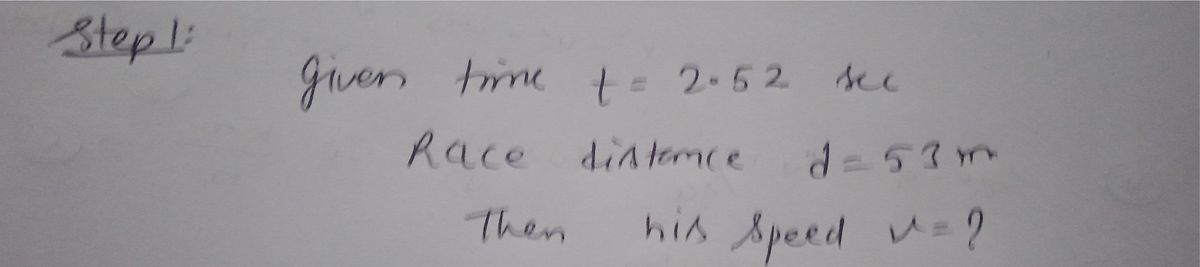 Step 1:
Given time t = 2.52 sec
Race distance d = 53 m
Then his speed v = ?